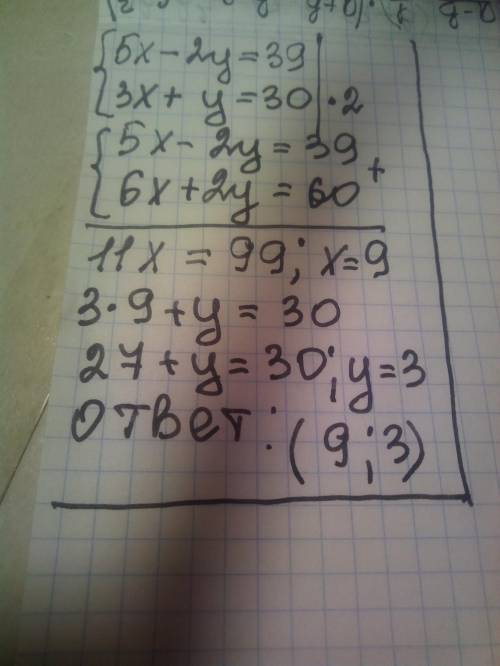 {5x-2y=39|
{3x+ y=30|·2
{5x-2y=39
{6x+2y=60 +
11x = 99; x=9
3·9+y=30
27+y=30; y=3
Ответ: (9;3)